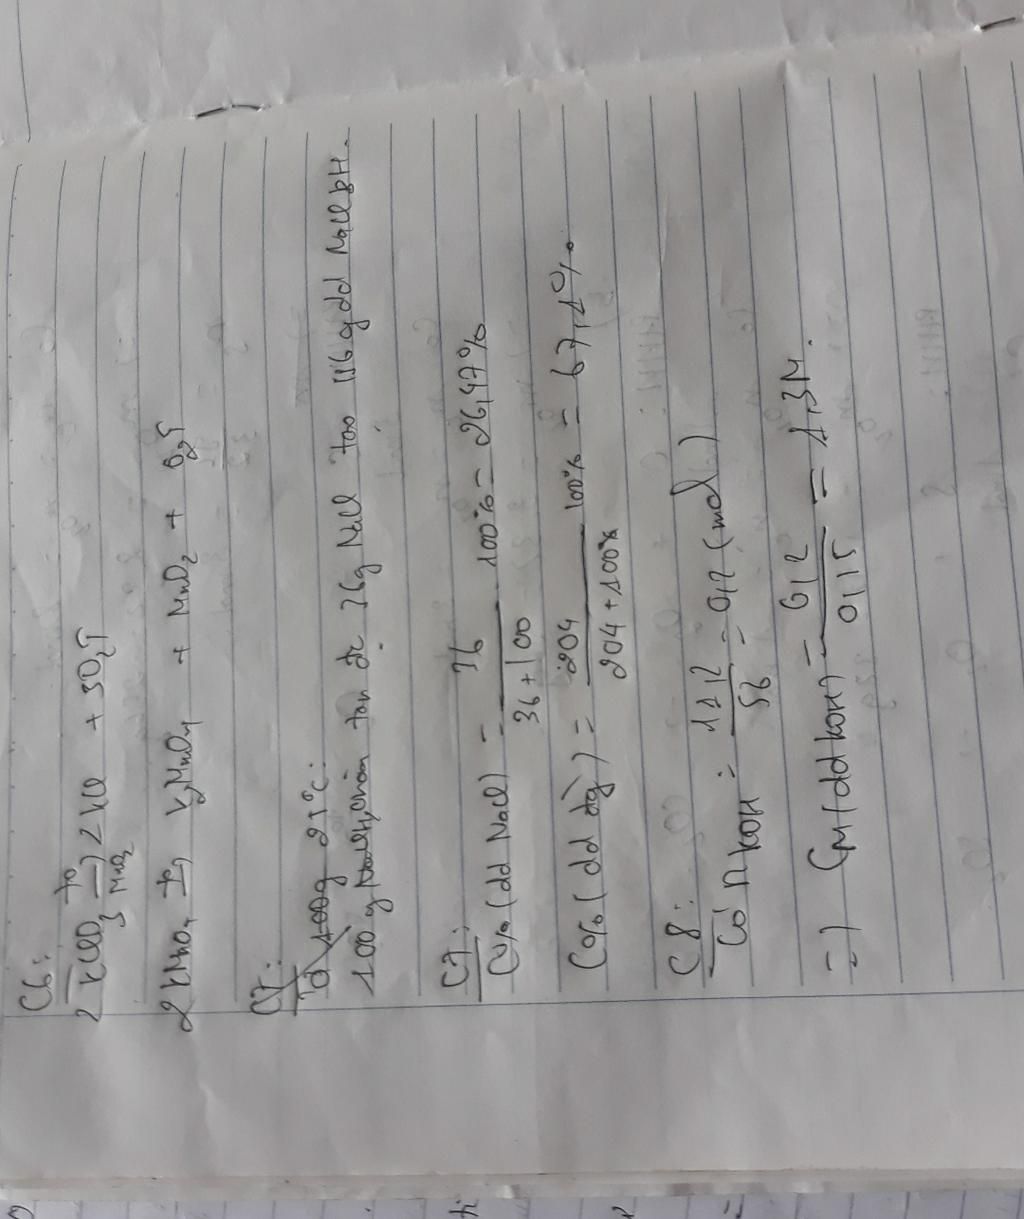 C6:
2 KClO3 t°→ MnO2 2 KCl + 3O2↑
2 KMnO4 t°→ K2MnO4 + MnO2 + O2↑
C7:
Ở 100g 25°C:
100 g tan đc 36g NaCl tạo 136 g dd NaCl BH.
C7:
C% (dd NaCl) = 36 / 36 + 100 . 100% = 26,47%
C% (dd đg) = 204 / 204 + 100% 100% = 67,1%.
C8:
Có nKOH = 11,2 / 56 = 0,2 (mol)
=) CM (dd KOH) = 0,2 / 0,15 = 1,3M.